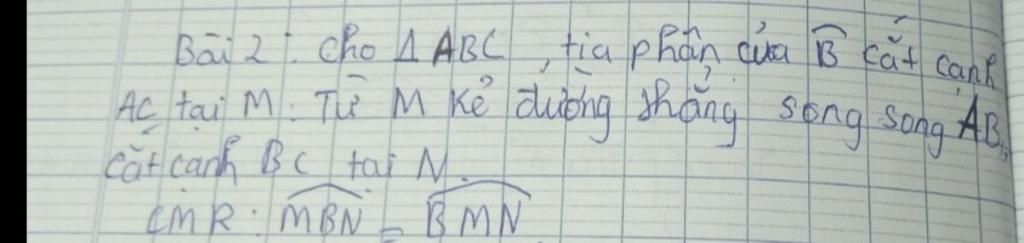 Bài 2 : Cho Δ ABC, tia phân của B̂ cắt cạnh
AC tại M. Từ M kẻ đường thẳng song song AB,
cắt cạnh BC tại N.
CMR : M̂BN = B̂MN